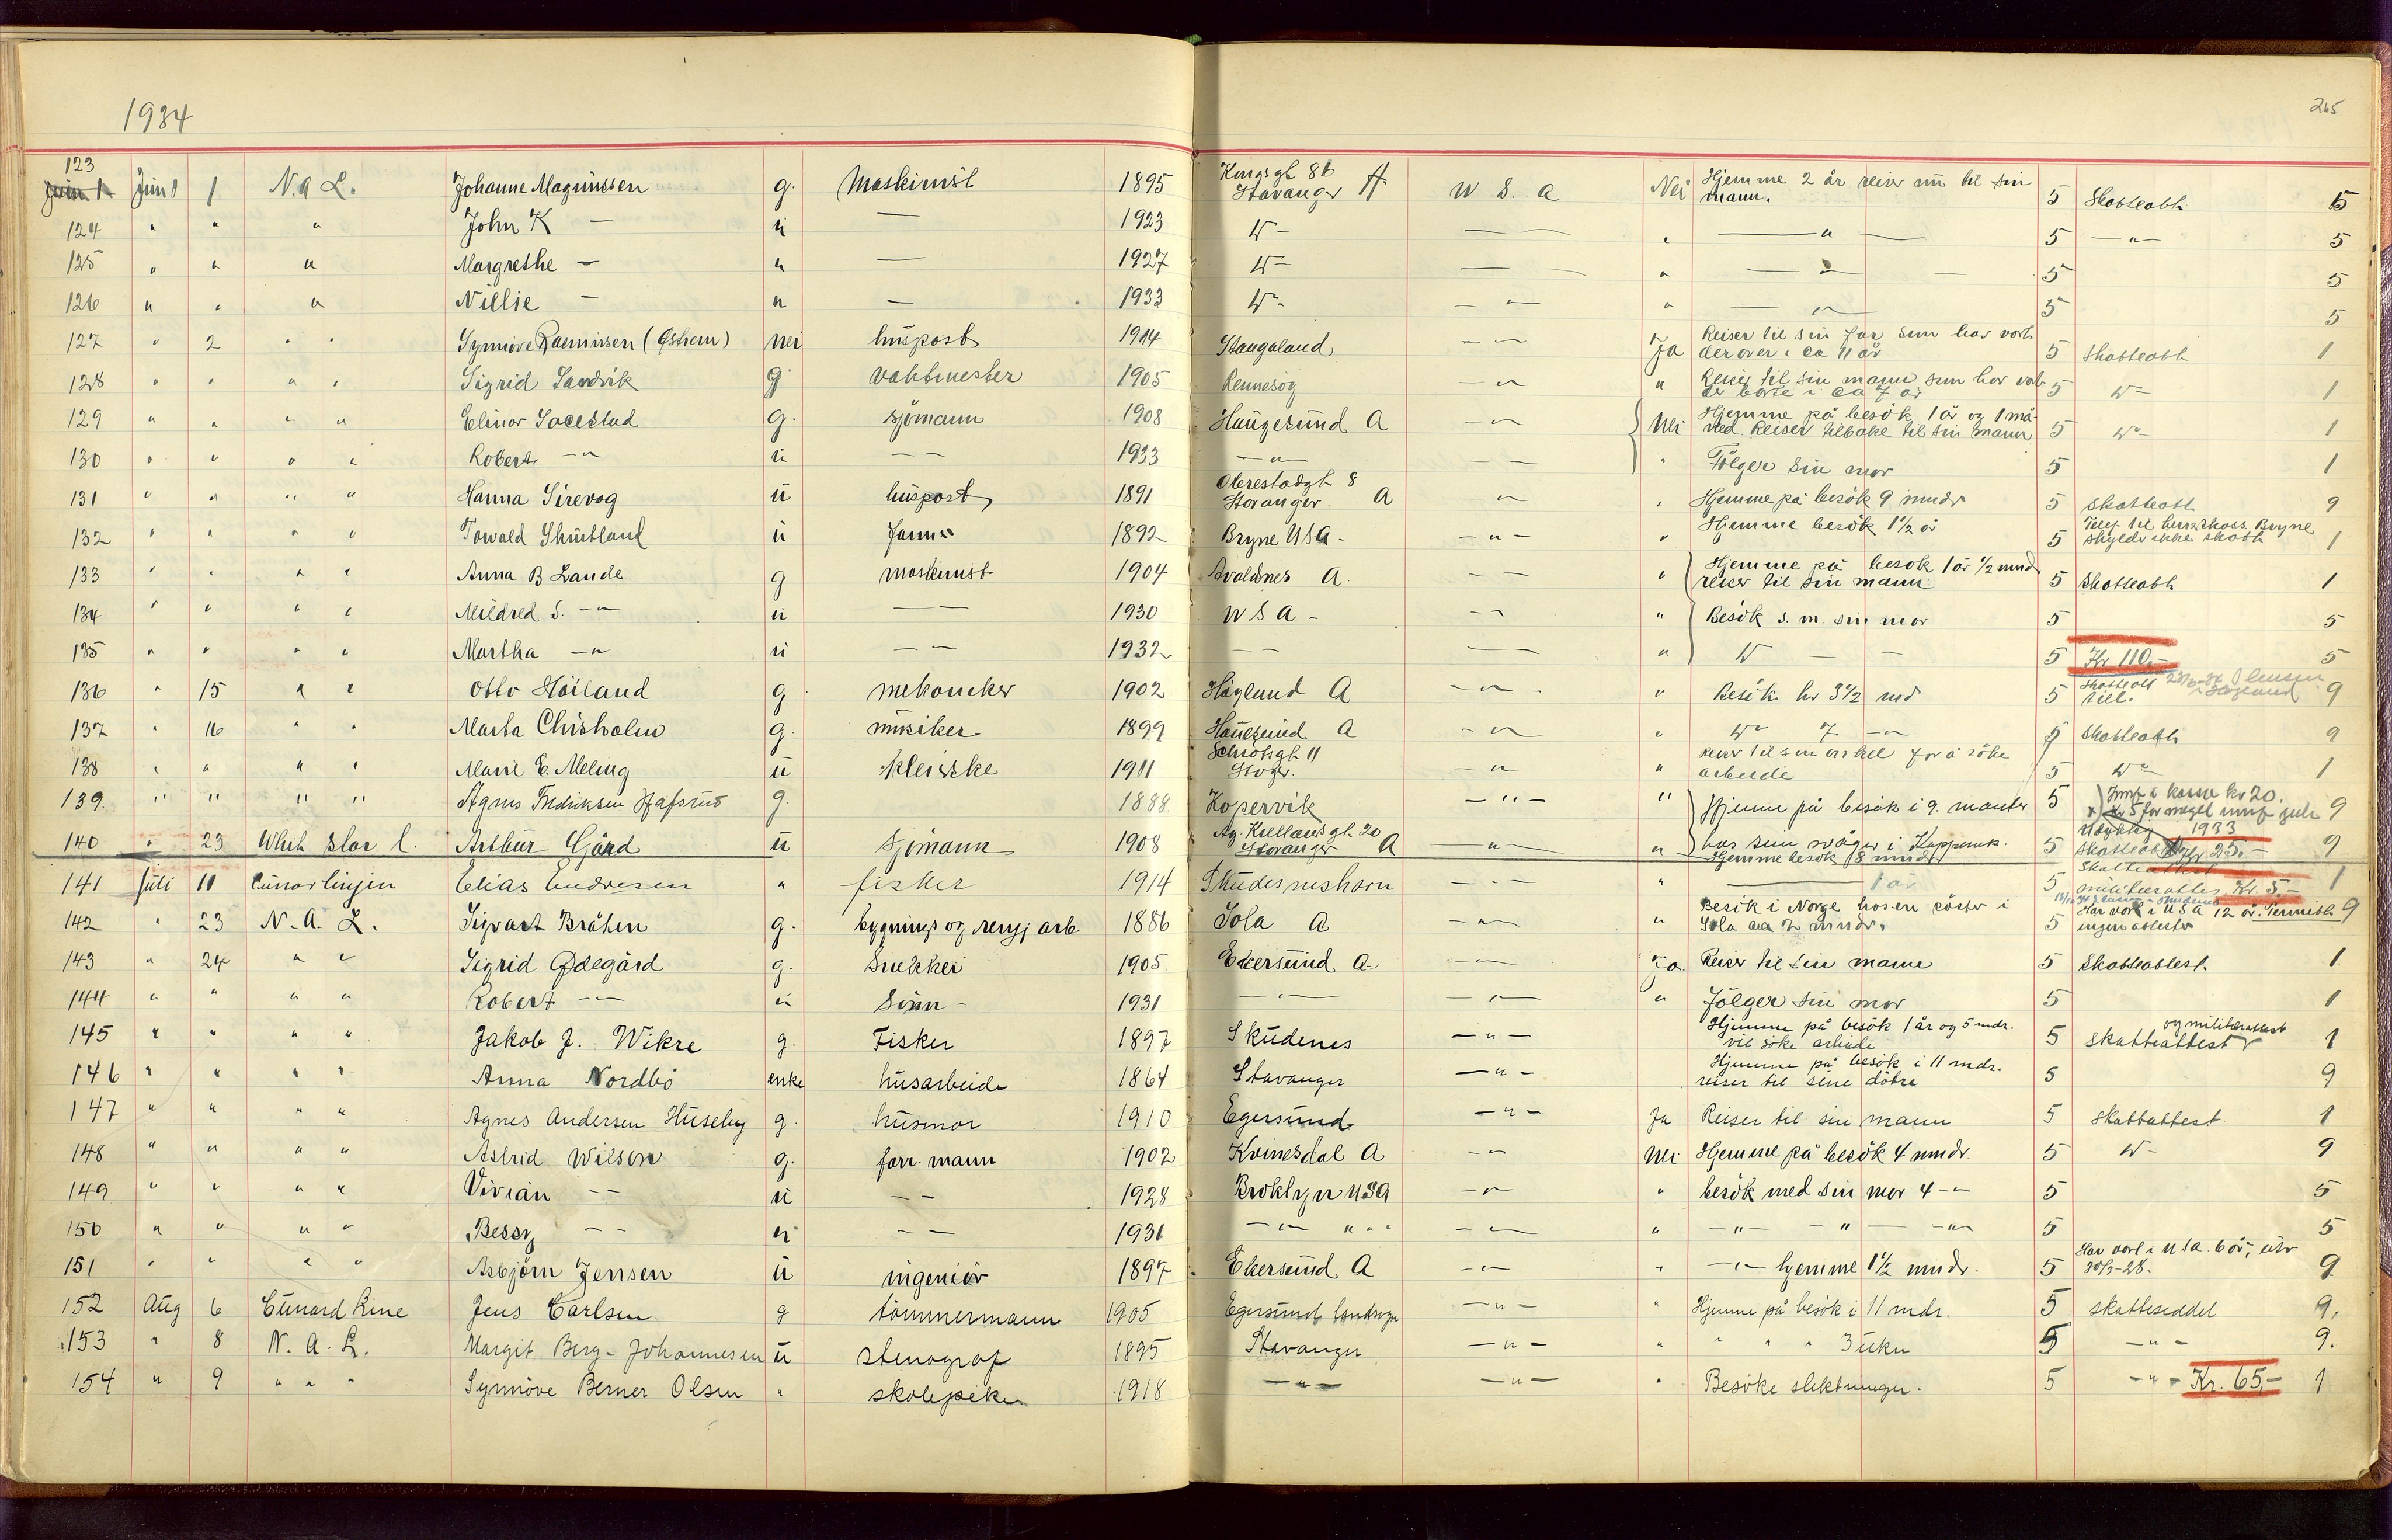 1934
265
123 Juni 1 N. A L. Johanne Magnussen g. Maskinist 1895 Kongsgt 86 Stavanger A U S. A Nei Hjemme 2 år reiser nu til sin mann. 5 Skatteatt. 5
124 " " " John K — u — 1923 D— — " — " — 5 — " — 5
125 " " " Margrethe — u — 1927 D— — " — " — 5 5
126 " " " Nillie — u — 1933 D— — " — " — " — 5 5
127 " 2 " " Synnöve Rasmussen (Östhem) nei huspost 1914 Stangaland — " — Ja Reiser til sin far som har vært der over i ca 11 år 5 Skatteatt 1
128 " " " " Sigrid Sandvik g vaktmester 1905 Rennesöy — " — " Reiser til sin mann som har vært der borte i ca 7 år 5 D— 1
129 " " " " Elinor g. sjömann 1908 Haugesund A — " — Nei Hjemme på besök 1 år og 1 måned. Reiser tilbake til sin mann 5 D— 1
130 " " " " Robert — " — u — — 1933 — " — — " Fölger sin mor 5 1
131 " " " " Hanna Sirevog u huspost 1891 8 Stavanger. A — " — " Hjemme på besök 9 mndr 5 Skatteatt. 9
132 " " " " Torvald Skuitland u farmer 1892 Bryne USA - — " — " Hjemme besök 1½ år 5 Telef. til herredskass. Bryne skylder ikke skatt 1
133 " " " " Anna B Lande g maskinist 1904 Avaldsnes A. — — " Hjemme på besök 1 år ½ mnd reiser til sin mann 5 Skatteatt 1
134 " " " " Mildred S. — " — u — — 1930 U S A - — " — " Besök s. m. sin mor 5 5
135 " " " " Martha — " — u — — 1932 — — — — " D — — 5 Kr 110,- 5
136 " 15 " " Otto Höiland g mekaniker 1902 Högland A — " — " Besök her 3½ mnd 5 Skatteatt till. 9
137 " 16 " " Marta Chisholm g. musiker 1899 Haugesund A — " — " D— 7 — " — 5 Skatteatt 9
138 " " " " Marie E. Meling u kleiske 1911 11 Stvgr. — " — " Reiser til sin onkel for å söke arbeide 5 D— 1
139. " " " " Agnes Fredriksen Hafsmo g. 1888 Kopervik — " — " Hjemme på besök i 9. manter 5 Innf i kasse kr 20. 9
kr 5 for meget innf juli 1933
140 " 23 White Star l. Arthur Gård u Sjömann 1908 Ag. Kiellands gt. 20 Stavanger A — " — " hos sin svåger i Hjemme besök 8 mndr 5 Skatteatt Kr 25.- 9
141 Juli 11 Cunarlinjen Elias Endresen " fisker 1914 Skudesneshavn — " — " — 1 år 5 Skatteattest militærattes Kr. 5- 1
142 " 23 N. A. L. Sigvart Bråten g. bygnings og rengj arb. 1886 Sola A — " — " Besök i Norge hos en söster i Sola ca 2 mndr. 5 Har vært i U S A 12 år. ingen attester 9
143 " 24 " " Sigrid Ödegård g. Snekker 1905 Ekersund A. — " — Ja Reiser til sin mann 5 Skatteattest. 1
144 " " " " Robert — — u Sönn - 1931 — " — — " — " Fölger sin mor 5 1
145 " " " " Jakob J. Wikre g. Fisker 1897 Skudenes — " — Hjemme på besök 1 år og 5 mdr. vil söke arbeide 5 skatteattest og militærattest 1
146 " " " " Anna Nordbö enke husarbeide 1864 Stavanger — " — Hjemme på besök i 11 mdr. reiser til sine döbre 5 9
147 " " " " Agnes Andersen Huseby g. husmor 1910 Egersund — " — Ja Reiser til sin mann 5 skattattest 1
148 " " " " Astrid Wilson g. forr. mann 1902 Kvinesdal A — " — Nei Hjemme på besök 4 mndr. 5 D— 9
149 " " " " Vivian — — u — — 1928 Broklyn USA — " — " besök med sin mor 4 — " — 5 5
150 " " " " Bessy — — u — — 1931 — " — " " " — " — " — " — — " — — " — 5 5
151 " " " " Asbjörn Jensen u ingeniör 1897 Ekersund A — " — " — " — hjemme 1½ mndr. 5 Har vært i USA. 6 år, utv 30/3-28. 9.
152 Aug 6 Cunard Line Jens Carlsen g tömmermann 1905 Egersund landsogn — " — " Hjemme på besök i 11 mdr. 5 skatteseddel 9.
153 " 8 N. A. L. Margit Berg-Johannesen u stenograf 1895 Stavanger — " — " " " " 3 uker 5 — " — 9.
154 " 9 " " " Synnöve Berner Olsen " skolepike 1918 — " — — " — " Besöke slektninger. 5 — " — Kr. 65,- 1